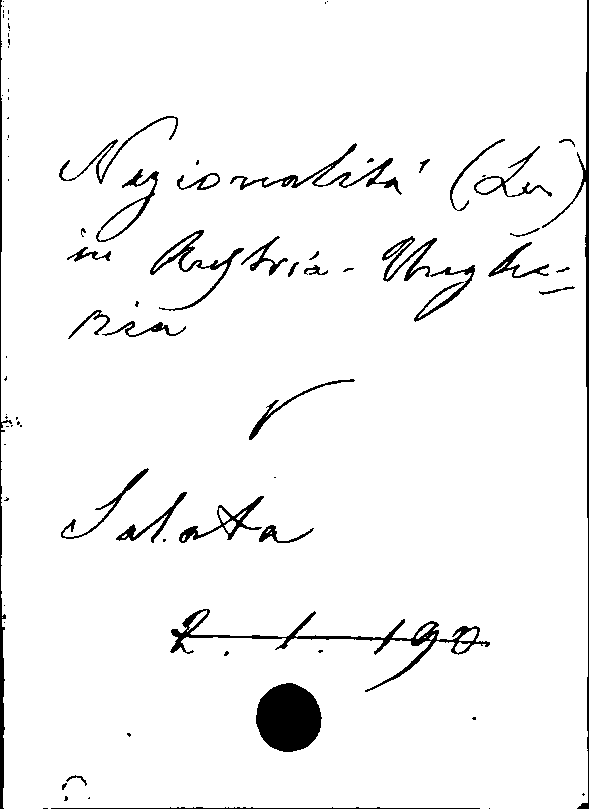 Nazionalità (Le)
in Austria-Unghe=
ria
V
Salata
2. 1. 190